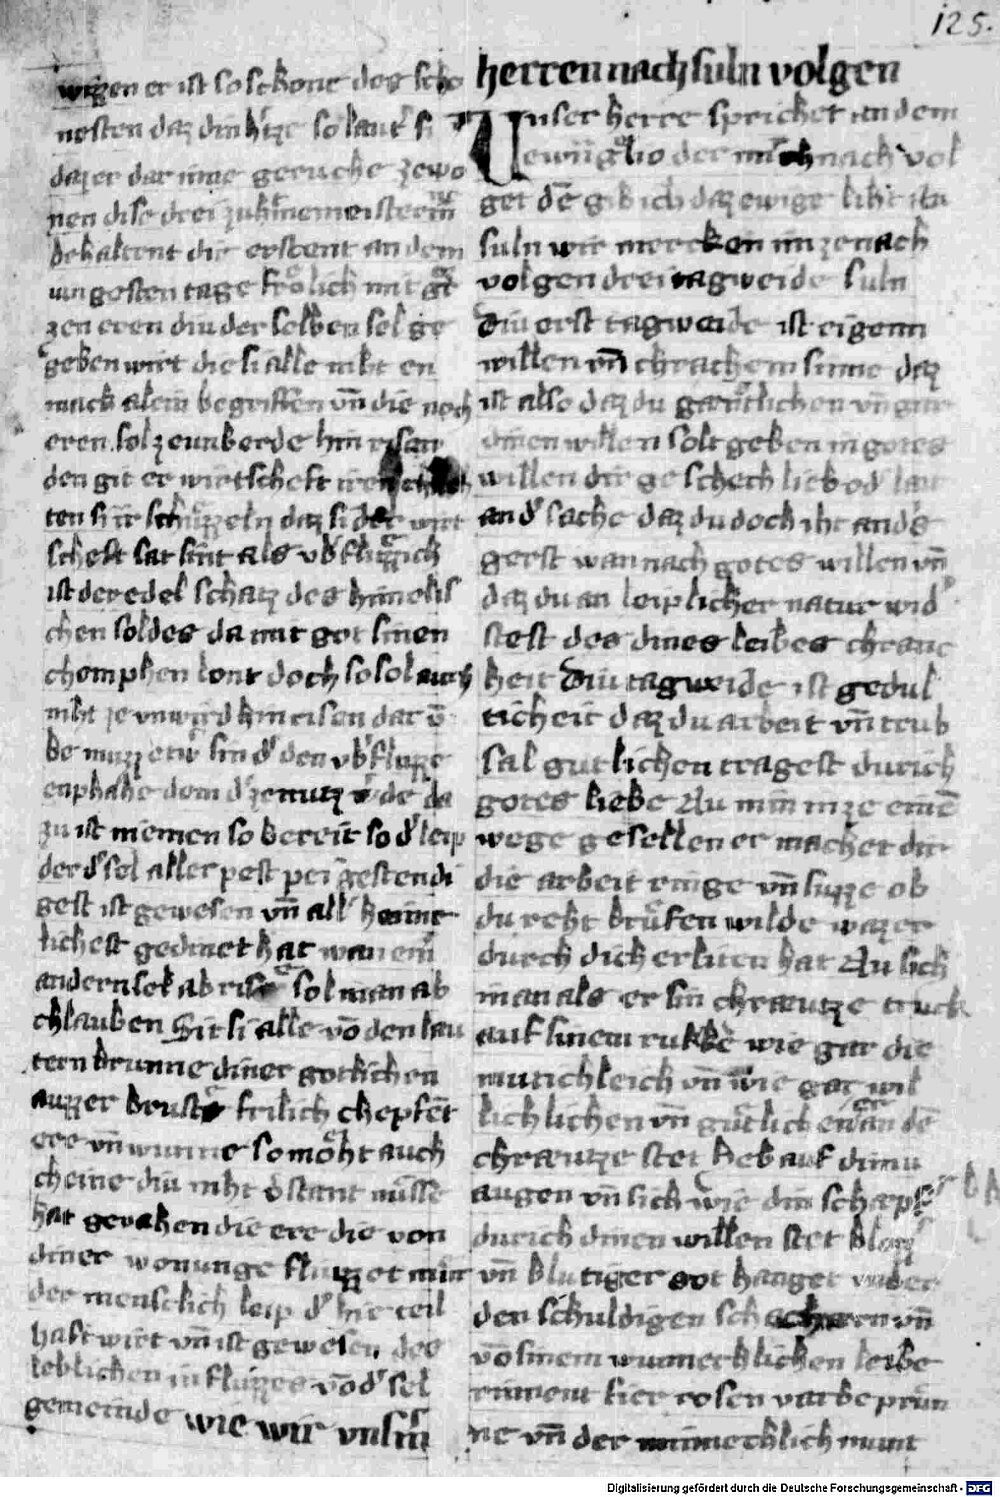 125.
wizzen er ist so schone des scho
nesten daz din h'tze so laut' si
daz er dar inne geruche zewo
nen dise drei zuh
behaltent die erstent an dem
iungesten tage frolich mit
zen eren diu der selben sel ge
geben wirt die si alle niht en
mach alein begriffen vn̄ die noch
eren sol ze unberde hin risen
den git er wirtscheft
ten si daz si der wirt
scheft sat sint als vb'flu
ist der edel schatz des himelis
chen soldes da mit got sinen
chemphen lont doch so sol auch
niht ze vnwird hin risen dar
be muzz etw sin d' den vb'fluzze
enphahe dem d' ze nutz w'de da
zu ist niemen so bereit so d' leip
der d' sel aller pest pei gestendi
gest ist gewesen vn̄ all'
lichest gedinet hat wan
andern sel ab sol man ab
chlauben Sit si alle vō den lau
tern brunne diner gotlichen
auzzer brust frilich chepfēt
ere vn̄ wunne so moht auch
cheine diu niht
hat gevahen die ere die von
diner wonunge fluzzet
der menschlich leip d' hie teil
haft wirt vn̄ ist gewesen des
leblichen in fluzzes vō d' sel
gemeinde wie wir vnsn̄
herren nach suln volgen
Unser herre sprichet in dem
ewāgelio der mir nach vol
get dē gib ich daz ewige liht
suln wir mercken im ze nach
volgen drei tagweide suln
Diu erst tagweide ist eigenn
willen vn̄ chrachem sinne daz
ist also daz du gærtlichen vn̄ gar
dinen willen solt geben in gotes
willen dir geschech lieb od' lait
an d' sache daz du doch iht and's
gerst wan nach gotes willen vn̄
daz du an leiplicher natur wid'
stest des dines leibes chranc
heit Diu tagweide ist gedul
ticheit daz du arbeit vn̄ trub
sal gutlichen tragest durich
gotes liebe Nu nim in ze einē
wege gesellen er machet dir
die arbeit ringe vn̄ suzze ob
du reht brufen wilde waz er
durch dich erliten hat Nu sich
in an als er sin chraeutze truck
auf sinem rukke wie gar die
mutichleich vn̄ wie gar wil
lichlichen vn̄ gutlich er an dē
chraeutze stet heb auf diniu
augen vn̄ sich wie din schæpf'
durich dinen willen stet bloz
vn̄ blutiger got hanget under
den schuldigen schachern vn̄
vō sinem wunnechlichen leibe
rinnent fier rosen varbe prun
ne vn̄ der minnechlich munt
Digitalisierung gefördert durch die Deutsche Forschungsgemeinschaft - DFG